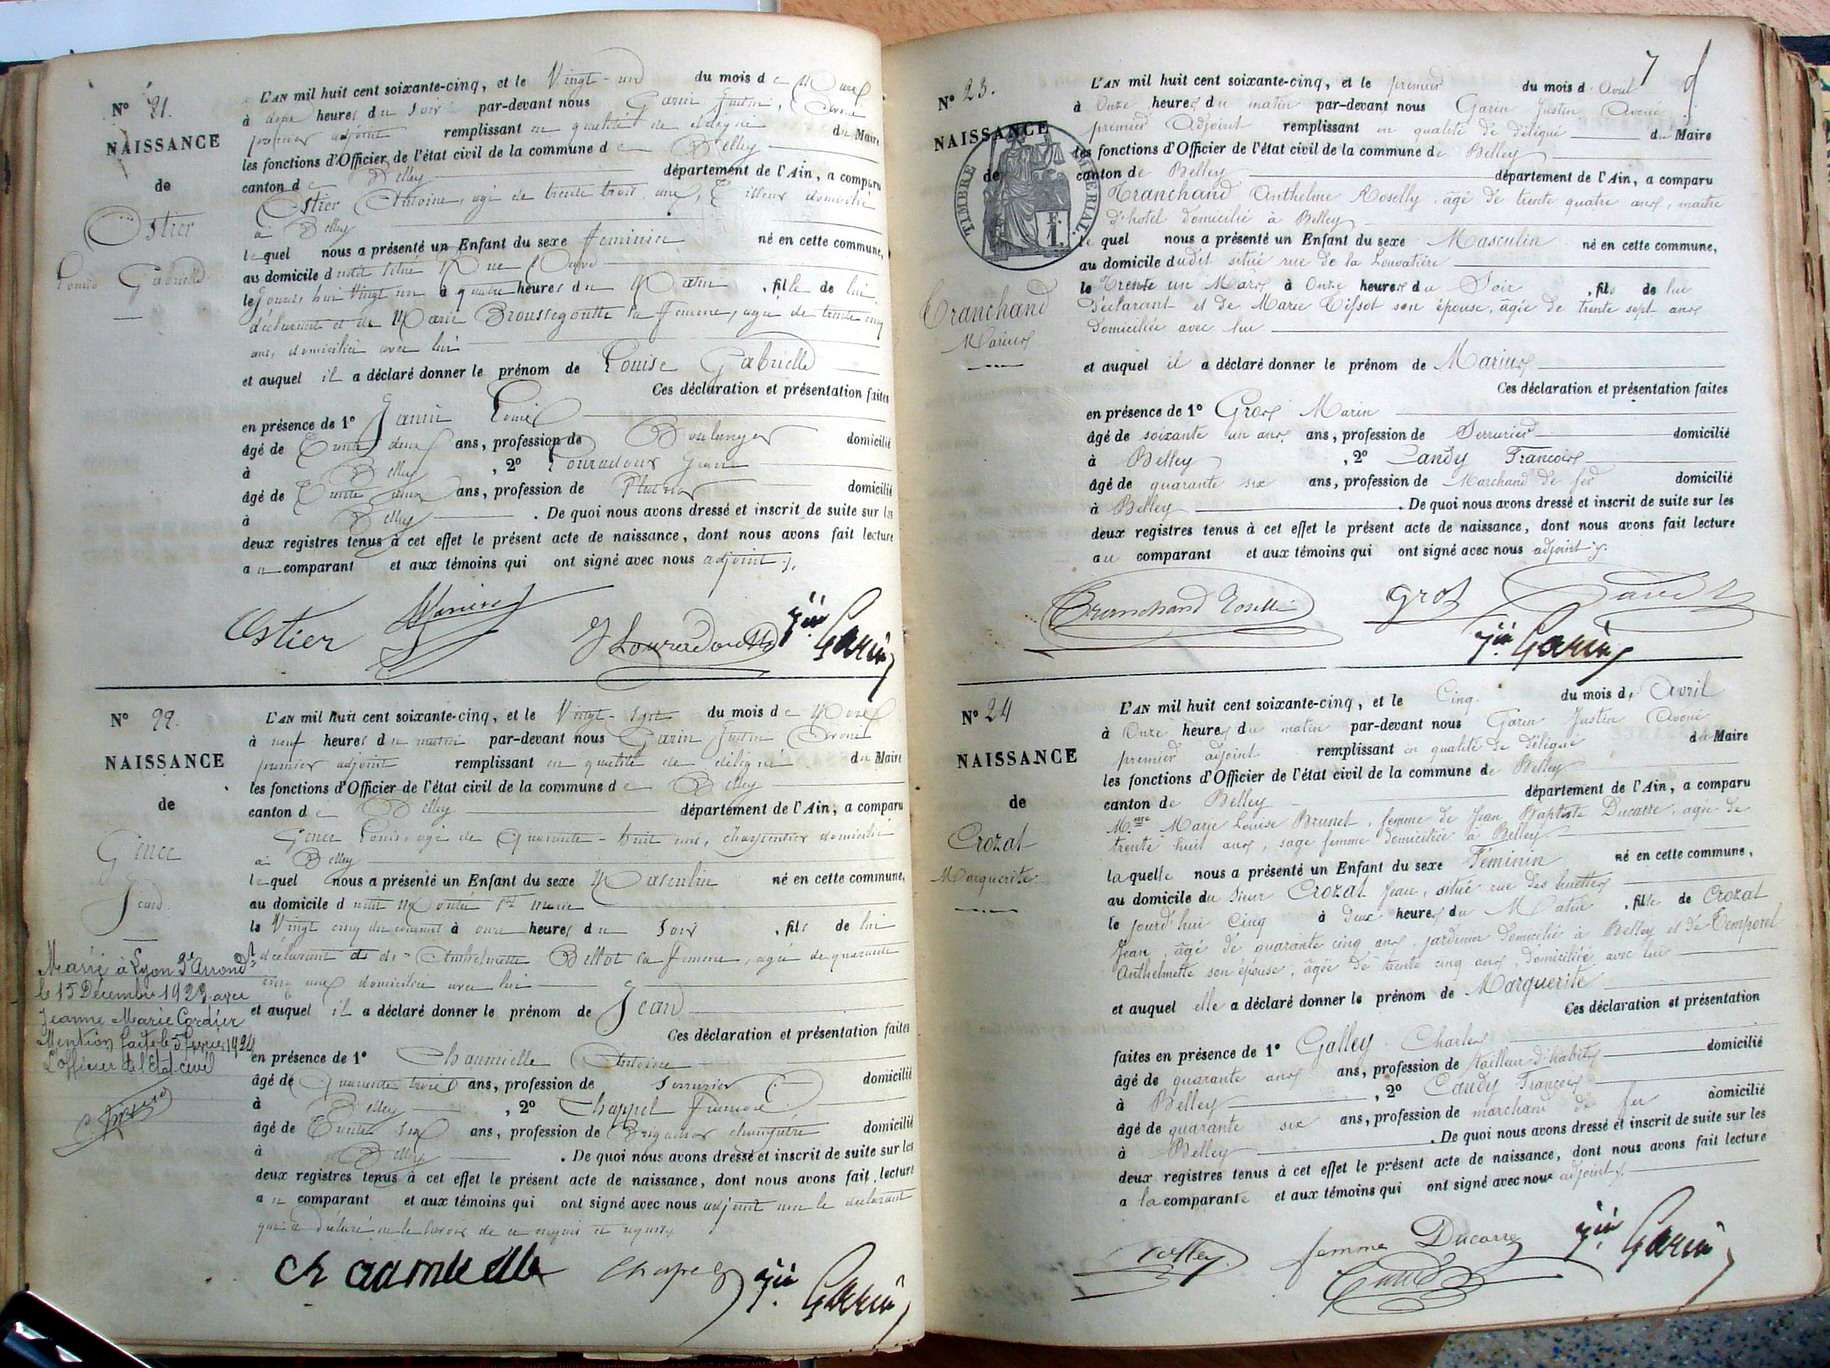 N° 21.
NAISSANCE
de
Ostier
Louise Gabrielle
L'AN mil huit cent soixante-cinq, et le Vingt-un du mois de Mars
à deux heures du soir par-devant nous Garin Justin, Avoué
premier adjoint remplissant en qualité de délégué du Maire
les fonctions d'Officier de l'état civil de la commune de Belley
canton de Belley département de l'Ain, a comparu
Ostier Antoine, agé de trente trois ans, domicilié
à Belley
lequel nous a présenté un Enfant du sexe féminin né en cette commune,
au domicile dudit situé Rue
le jourd'hui vingt un à quatre heures du Matin, fille de lui
déclarant et de Marie Broussegoutte sa femme, agée de trente cinq
ans, domiciliée avec lui
et auquel il a déclaré donner le prénom de Louise Gabrielle
Ces déclaration et présentation faites
en présence de 1° Janin Louis
âgé de Trente deux ans, profession de Boulanger domicilié
à Belley, 2° Louradour Jean
âgé de Trente ans, profession de Platrier domicilié
à Belley. De quoi nous avons dressé et inscrit de suite sur les
deux registres tenus à cet effet le présent acte de naissance, dont nous avons fait lecture
au comparant et aux témoins qui ont signé avec nous adjoint ./.
Ostier Janin J Louradour Jin Garin
N° 22.
NAISSANCE
de
Genex
Jean
Marié à Lyon 3e Arrondt
le 15 Décembre 1923 avec
Jeanne Marie Cordier
Mention faite le 5 février 1924
L'officier de l'Etat civil
L'AN mil huit cent soixante-cinq, et le Vingt-sept du mois de Mars
à neuf heures du matin par-devant nous Garin Justin Avoué
premier adjoint remplissant en qualité de délégué du Maire
les fonctions d'Officier de l'état civil de la commune de Belley
canton de Belley département de l'Ain, a comparu
Genex Louis, agé de Quarante-huit ans, charpentier domicilié
à Belley
lequel nous a présenté un Enfant du sexe Masculin né en cette commune,
au domicile dudit
le Vingt cinq du courant à onze heures du soir, fils de lui
déclarant et de Anthelmette Bellot sa femme, agée de quarante
cinq ans domiciliée avec lui
et auquel il a déclaré donner le prénom de Jean
Ces déclaration et présentation faites
en présence de 1° Chaumielle Antoine
âgé de Quarante trois ans, profession de Serrurier domicilié
à Belley, 2° Chappel François
âgé de Trente six ans, profession de domicilié
à Belley. De quoi nous avons dressé et inscrit de suite sur les
deux registres tenus à cet effet le présent acte de naissance, dont nous avons fait lecture
au comparant et aux témoins qui ont signé avec nous adjoint non le déclarant
qui a déclaré ne le savoir de ce requis
Jin Garin
7
N° 23.
NAISSANCE
de
TIMBRE IMPERIAL.
Tranchand
Marius
L'AN mil huit cent soixante-cinq, et le premier du mois d'Avril
à Onze heures du matin par-devant nous Garin Justin Avoué
premier Adjoint remplissant en qualité de délégué du Maire
les fonctions d'Officier de l'état civil de la commune de Belley
canton de Belley département de l'Ain, a comparu
Tranchand Anthelme Roselly, agé de trente quatre ans, maître
d'hotel domicilié à Belley
lequel nous a présenté un Enfant du sexe Masculin né en cette commune,
au domicile dudit situé rue de la Louvatière
le Trente un Mars à Onze heures du Soir, fils de lui
Déclarant et de Marie Tissot son épouse, agée de trente sept ans
domiciliée avec lui
et auquel il a déclaré donner le prénom de Marius
Ces déclaration et présentation faites
en présence de 1° Gros Marin
âgé de soixante un ans ans, profession de Serrurier domicilié
à Belley, 2° Candy François
âgé de quarante six ans, profession de Marchand de fer domicilié
à Belley. De quoi nous avons dressé et inscrit de suite sur les
deux registres tenus à cet effet le présent acte de naissance, dont nous avons fait lecture
au comparant et aux témoins qui ont signé avec nous adjoint ./.
Tranchand Roselli Gros Candy
Jin Garin
N° 24
NAISSANCE
de
Crozat
Marguerite
L'AN mil huit cent soixante-cinq, et le Cinq du mois d'Avril
à Onze heures du matin par-devant nous Garin Justin Avoué
premier adjoint remplissant en qualité de délégué du Maire
les fonctions d'Officier de l'état civil de la commune de Belley
canton de Belley département de l'Ain, a comparu
Mme Marie Louise Brunet, femme de Jean Baptiste Ducarre, agée de
trente huit ans, sage femme domiciliée à Belley
laquelle nous a présenté un Enfant du sexe Féminin né en cette commune,
au domicile du Sieur Crozat Jean, situé rue des huttes
le jourd'hui Cinq à deux heures du Matin, fille de Crozat
Jean, âgé de quarante cinq ans, jardinier domicilié à Belley et de Temporel
Anthelmette son épouse, agée de trente cinq ans, domiciliée avec lui
et auquel elle a déclaré donner le prénom de Marguerite
Ces déclaration et présentation
faites en présence de 1° Galley Charles
âgé de quarante ans ans, profession de tailleur d'habits domicilié
à Belley, 2° Candy François
âgé de quarante six ans, profession de marchand de fer domicilié
à Belley. De quoi nous avons dressé et inscrit de suite sur les
deux registres tenus à cet effet le présent acte de naissance, dont nous avons fait lecture
a la comparante et aux témoins qui ont signé avec nous adjoint ./.
Galley femme Ducarre Jin Garin
Candy